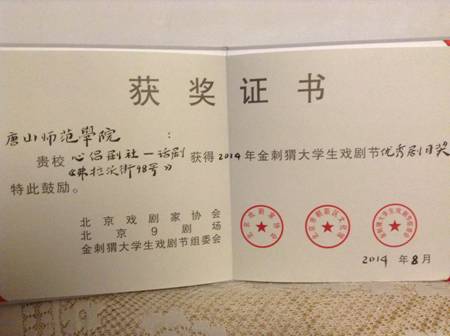 获奖证书
唐山师范學院:
贵校心侣剧社—话剧《弗拉沃街98号》获得2014年金刺猬大学生戏剧节优秀剧目奖
特此鼓励。
北京戏剧家协会
北京9剧场
金刺猬大学生戏剧节组委会
2014年8月